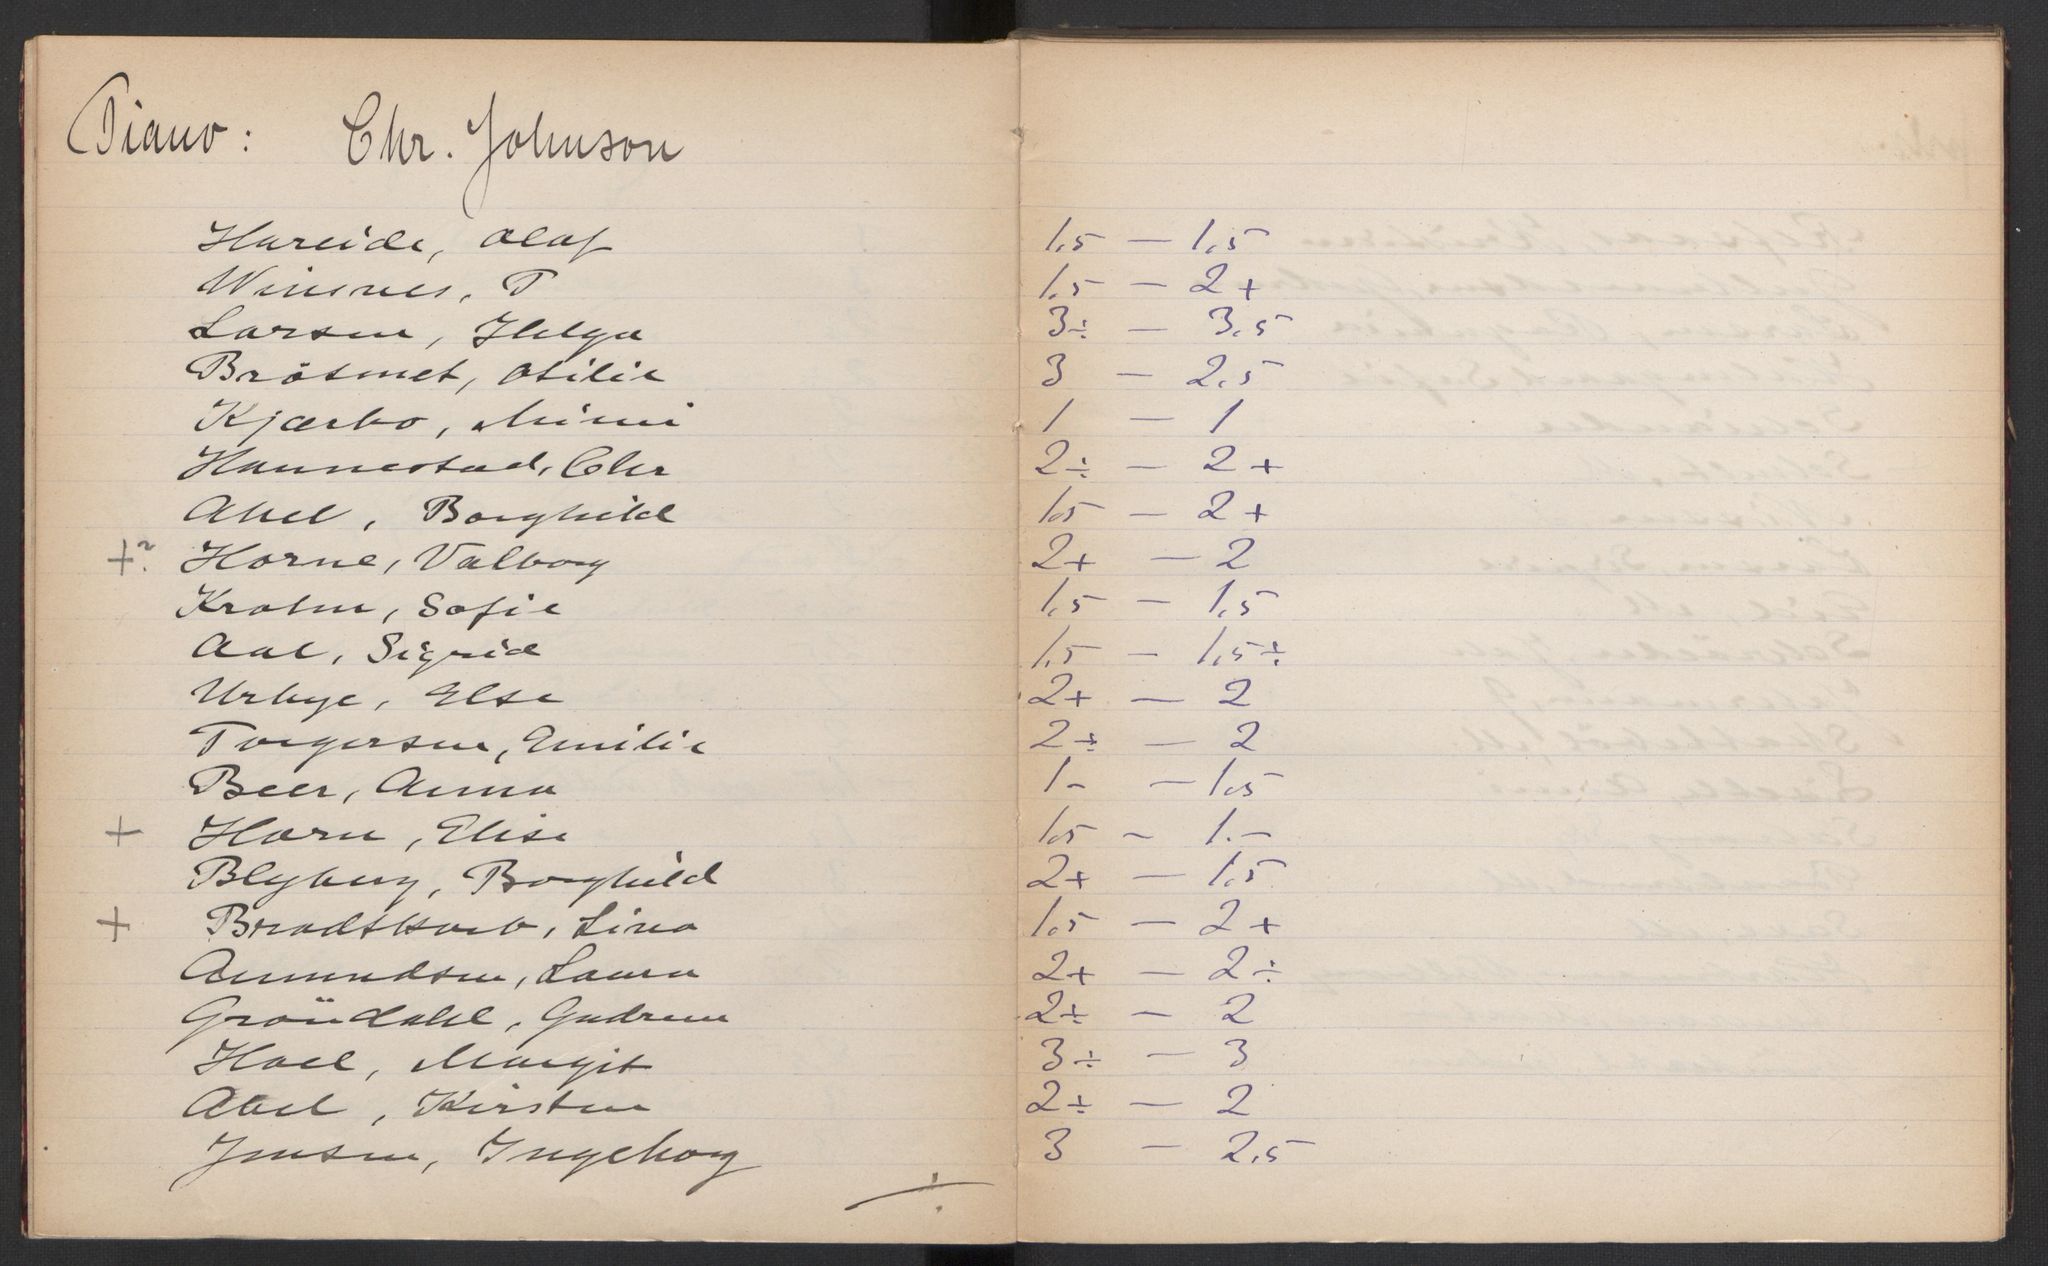 Piano: Chr. Johnson
Hareide, Olaf 1,5 — 1,5
Winsnes, T 1,5 — 2+
Larsen, Helga 3÷ — 3,5
Bråtmet, Otilie 3 — 2,5
Kjærbo, Mimi 1 — 1
Hannestad, Chr 2÷ — 2+
Abel, Borghild 1,5 — 2+
+? Horne, Valborg 2+ — 2
Krohn, Sofie 1,5 — 1,5
Aal, Sigrid 1,5 — 1,5÷
Urbye, Else 2+ — 2
Torgersen, Emilie 2÷ — 2
Beer, Anna 1- — 1,5
+ Horn, Elise 1,5 — 1.-
Blyberg, Borghild 2+ — 1,5
+ Brodtkorb, Lina 1,5 — 2+
Amundsen, Laura 2+ — 2÷
Gröndahl, Gudrun 2÷ — 2
Hoel, Margit 3÷ — 3
Abel, Kirsten 2÷ — 2
Jensen, Ingeborg 3 — 2,5
÷